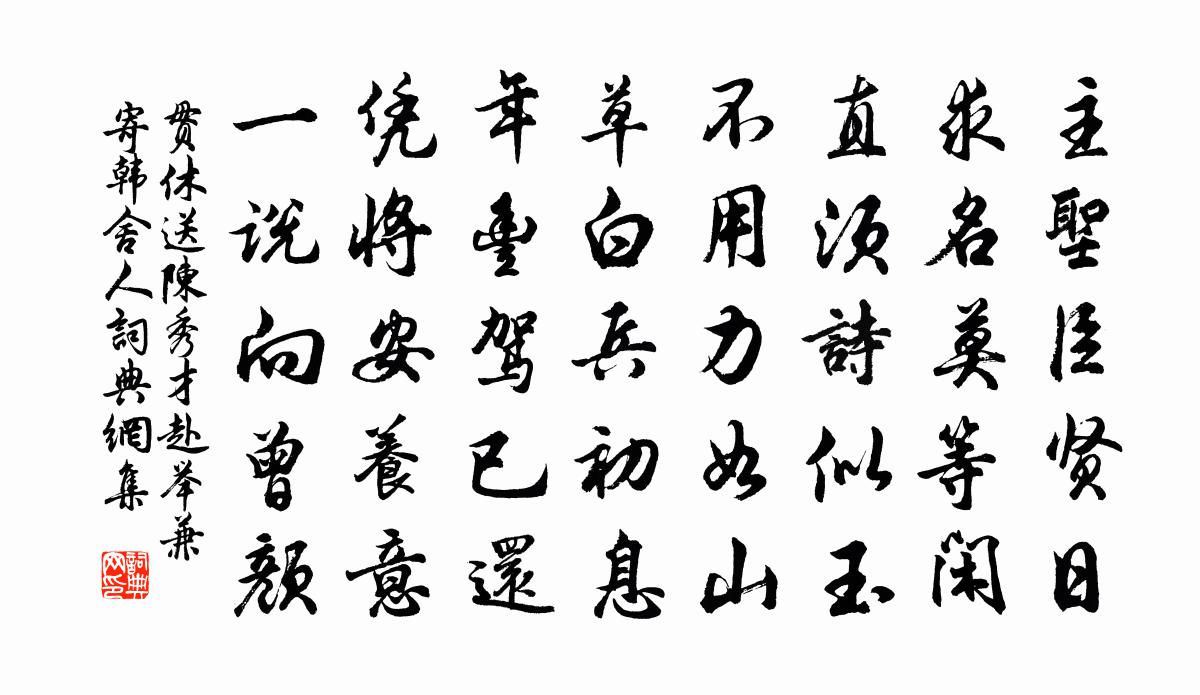 主聖臣贤日
求名莫等闲
直须詩似玉
不用力如山
草白兵初息
年豊駕已還
凭將安養意
一说向曾颜
贯休送陳秀才赴举兼
寄韩舍人詞典網集
詞典网印